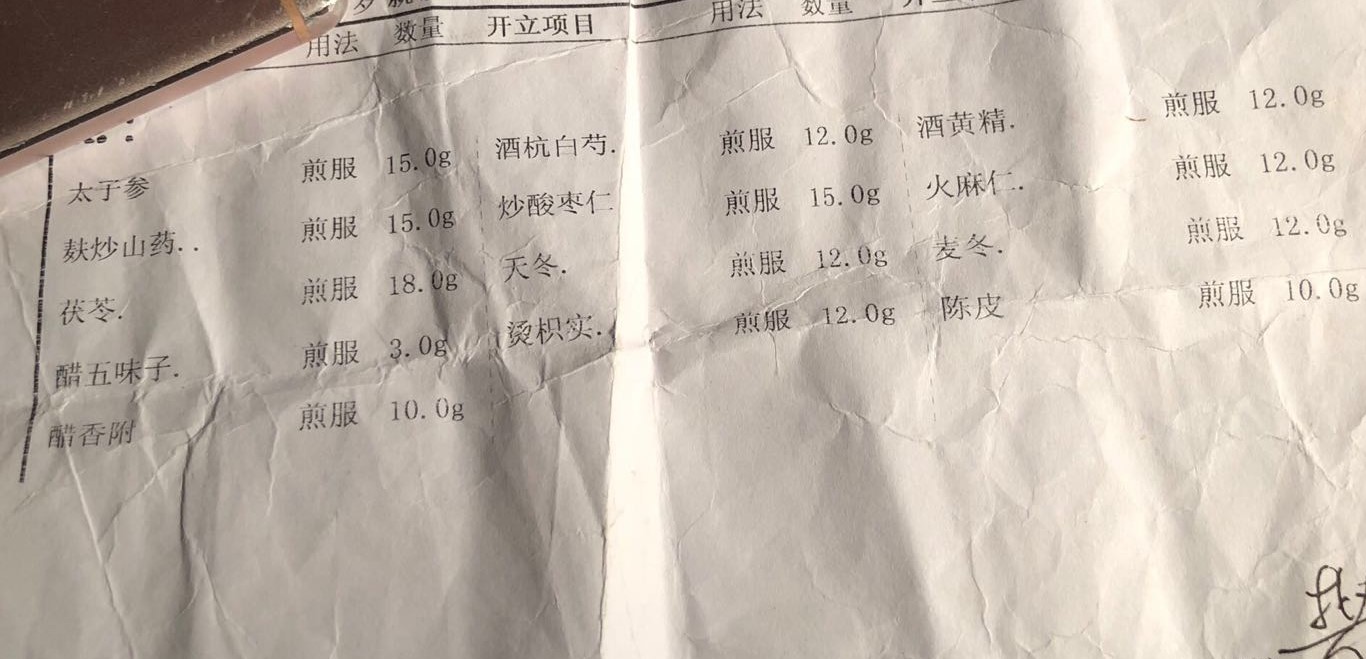 用法 数量 开立项目 用法 数量
太子参 煎服 15.0g 酒杭白芍. 煎服 12.0g 酒黄精. 煎服 12.0g
麸炒山药.. 煎服 15.0g 炒酸枣仁 煎服 15.0g 火麻仁. 煎服 12.0g
茯苓. 煎服 18.0g 天冬. 煎服 12.0g 麦冬. 煎服 12.0g
醋五味子. 煎服 3.0g 烫枳实. 煎服 12.0g 陈皮 煎服 10.0g
醋香附 煎服 10.0g